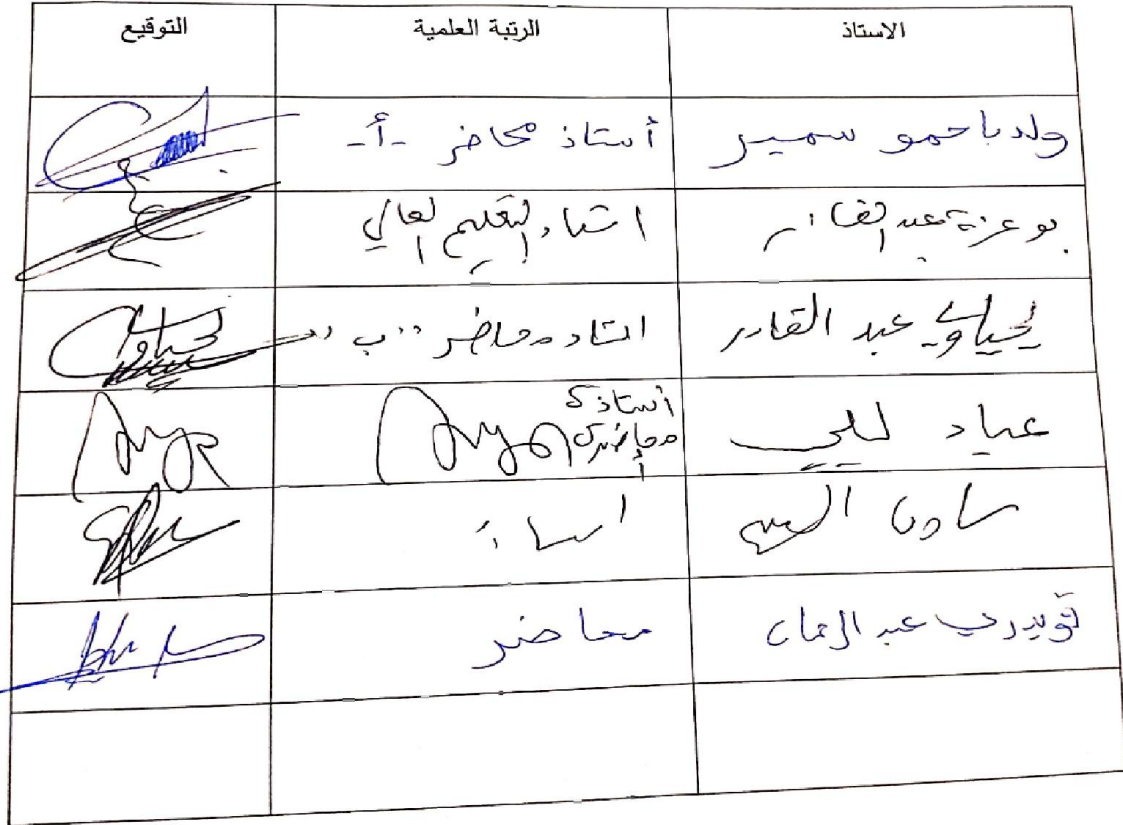 الاستاذ الرتبة العلمية التوقيع
ولد باحمو سمير أستاذ محاضر -أ-
بوعزة عبد القادر استاذ التعليم العالي
يحياوي عبد القادر استاذ محاضر "ب"
عياد ليلى أستاذة
محاضرة
أ
استاذ
قويدري عبد الرحمان محاضر